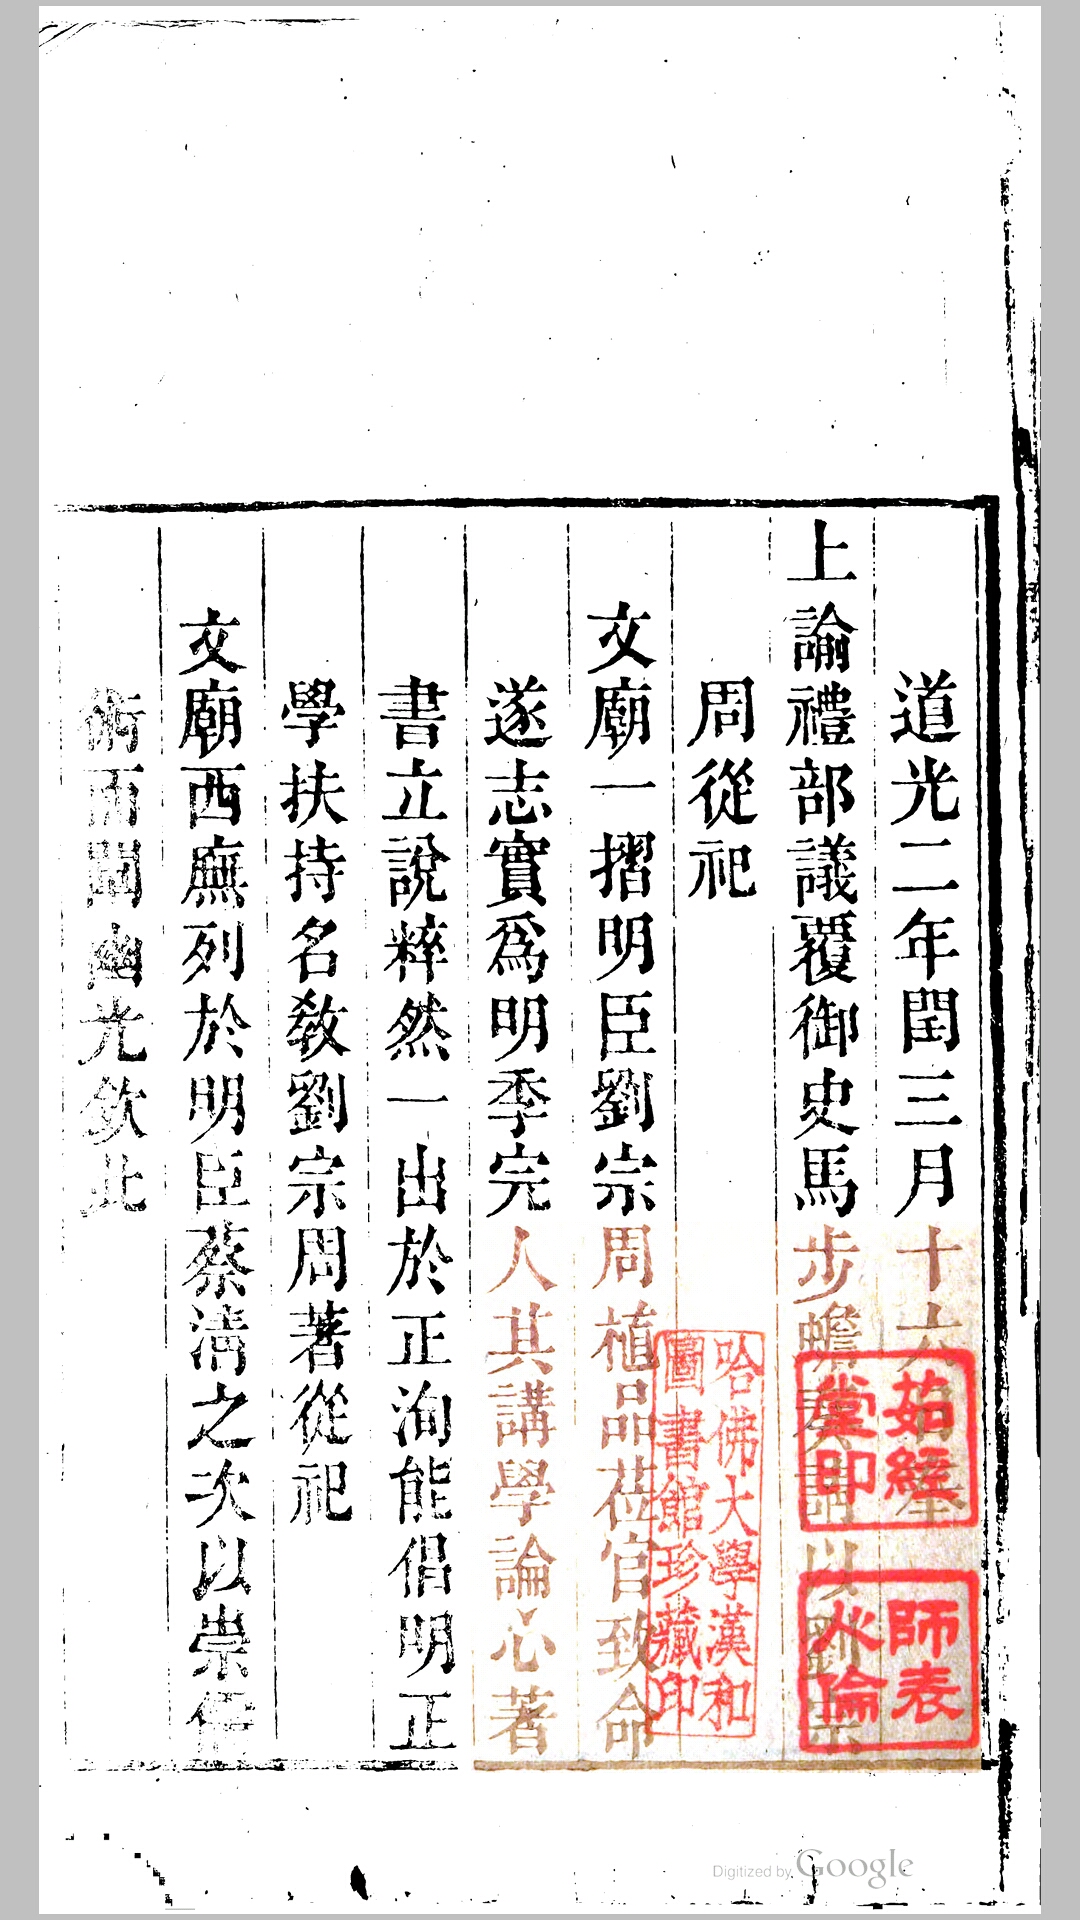 道光二年閏三月十六日奉
上諭禮部議覆御史馬步蟾奏請以劉宗
周從祀
文廟一摺明臣劉宗周植品莅官致命
遂志實爲明季完人其講學論心著
書立說粹然一出於正洵能倡明正
學扶持名教劉宗周著從祀
文廟西廡列於明臣蔡清之次以崇儒
術而闡幽光欽此
哈佛大學漢和
圖書館珍藏印
茹經
堂印
師表
人倫
Digitized by Google